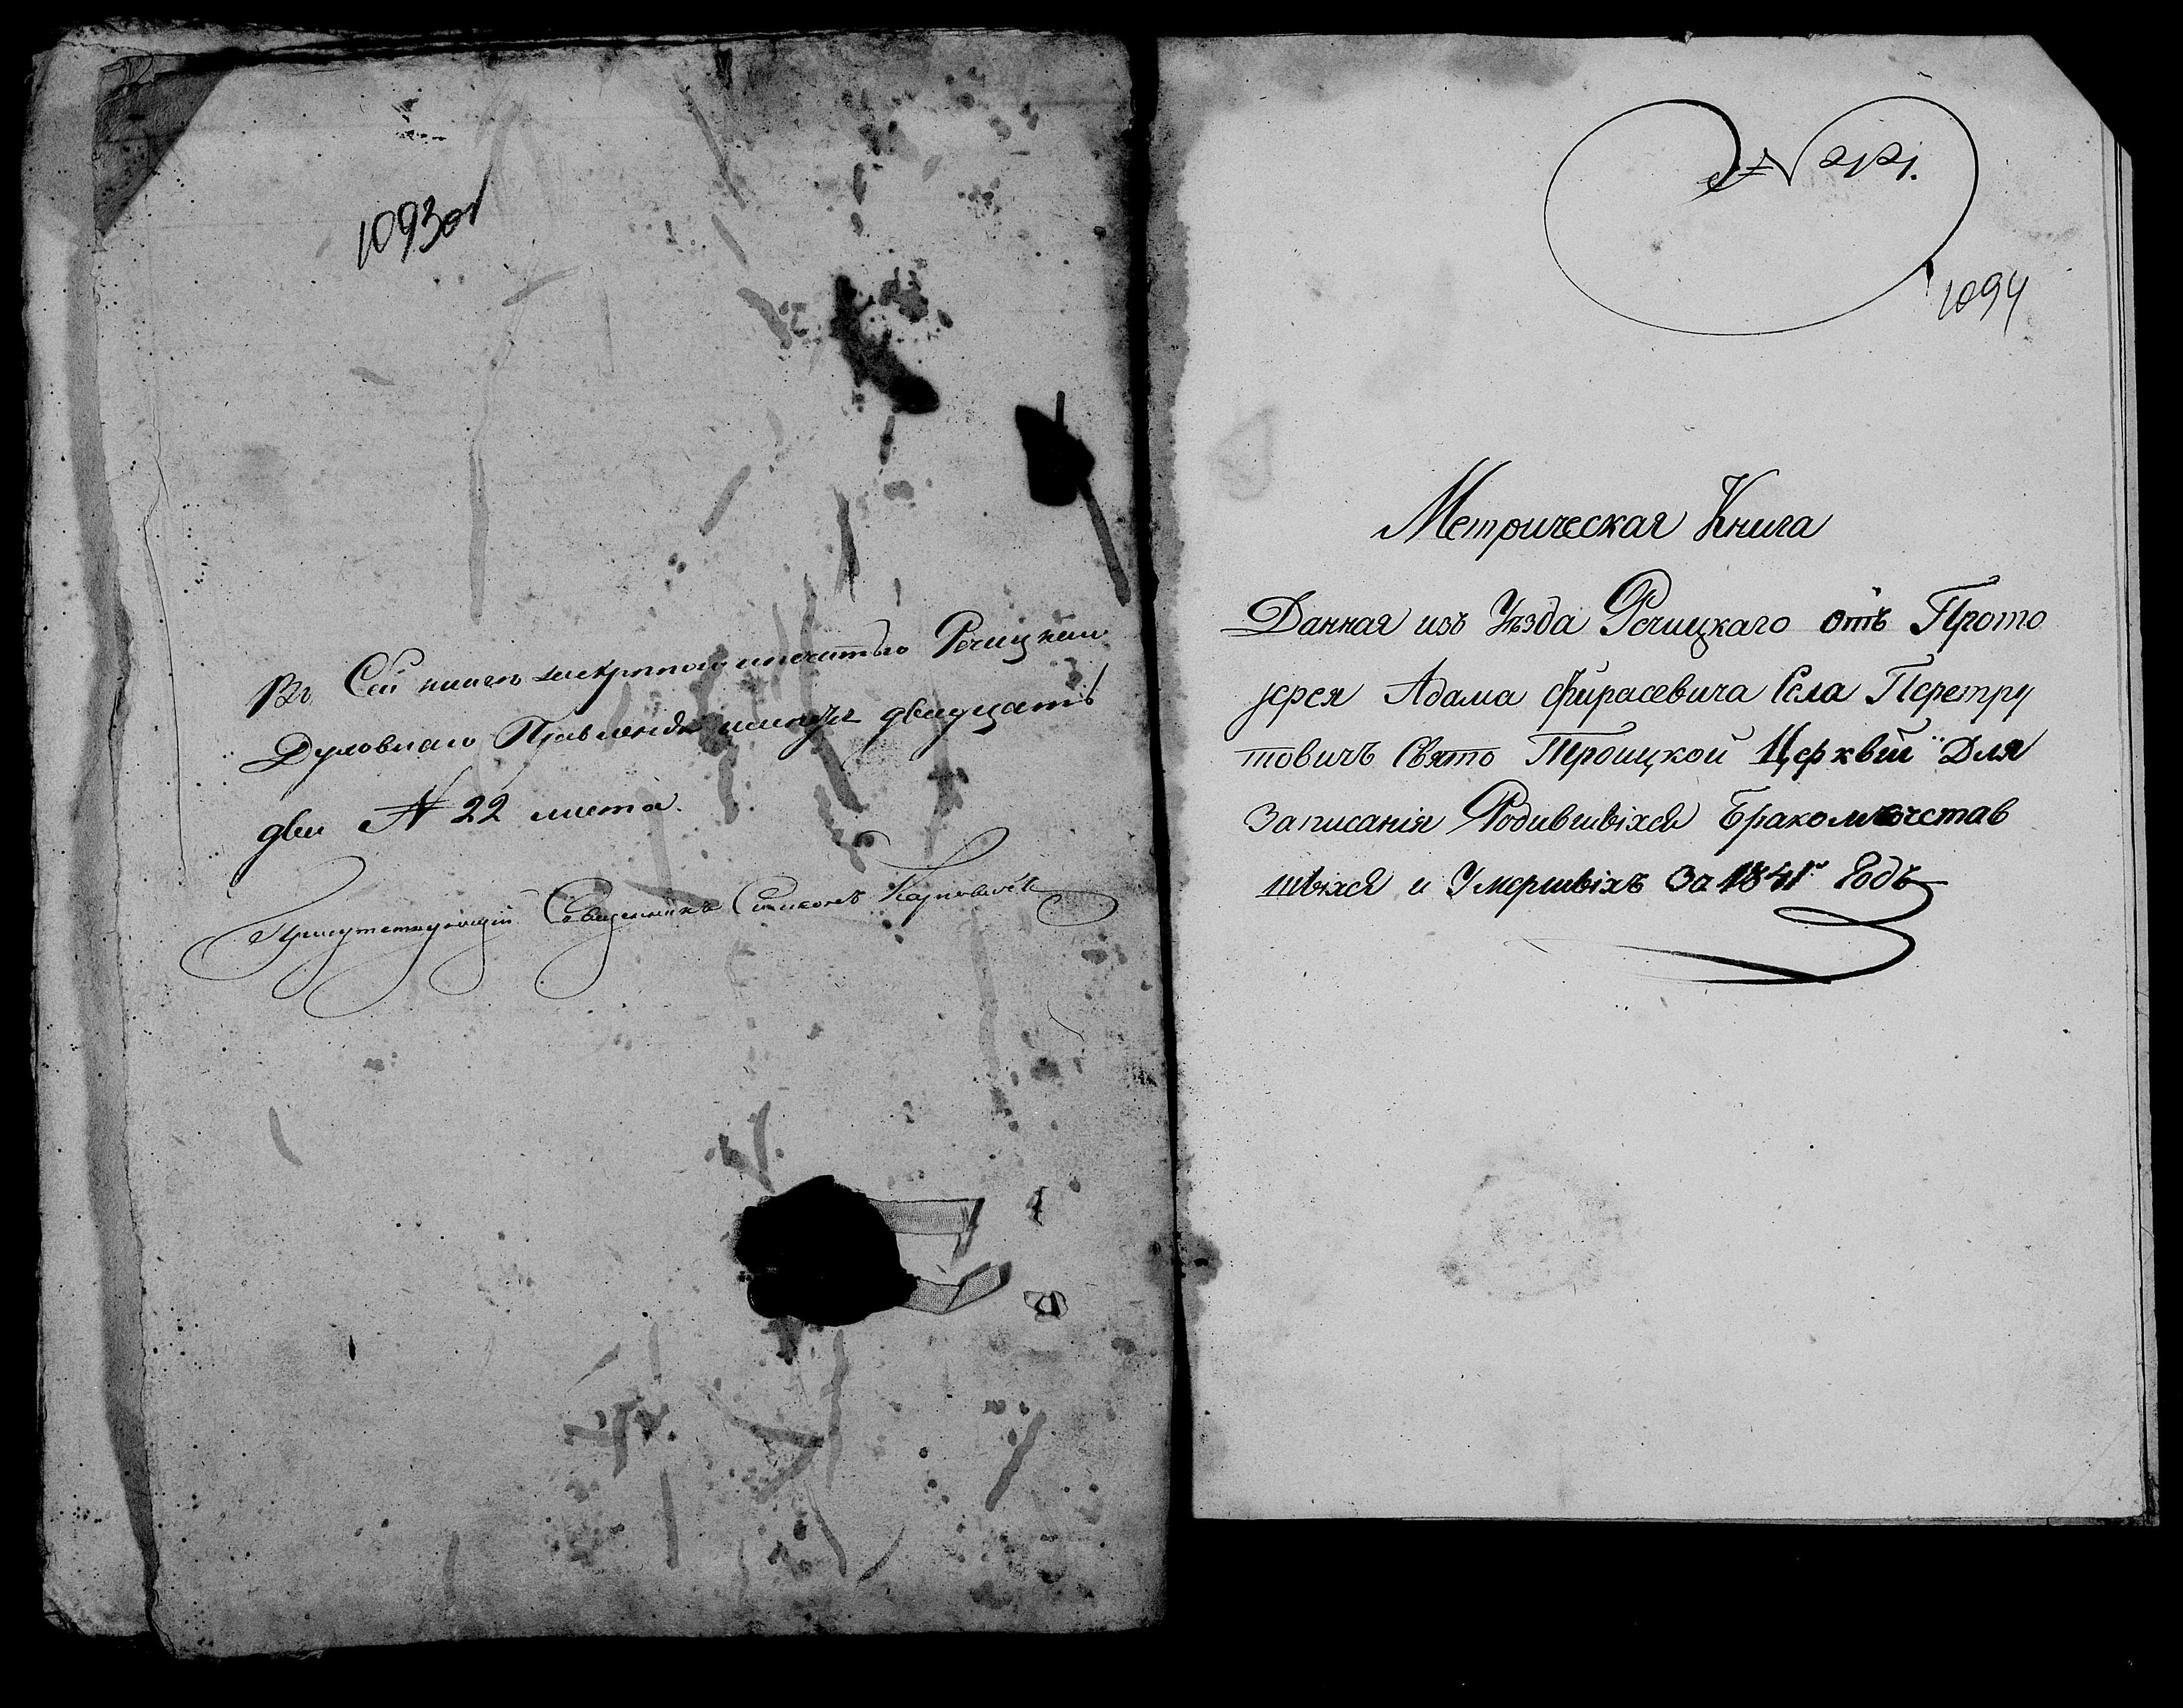 1093об
Въ Сей книге шнурной и печатью Речицкаго
Духовнаго Правления листовъ двадцать
два № 22 листа.
Присутствующий Священникъ Симеонъ Карповичъ
№ 2121.
1094
Метрическая Книга
Данная изъ Уѣзда Речицкаго отъ Прото
јерея Адама Фирасевича Села Перетру
товичъ Свято Троицкой Церквiи Для
Записанiя Родившвiхся Бракомъочетав
швiхся и Умершвiхъ За 1841й Годъ